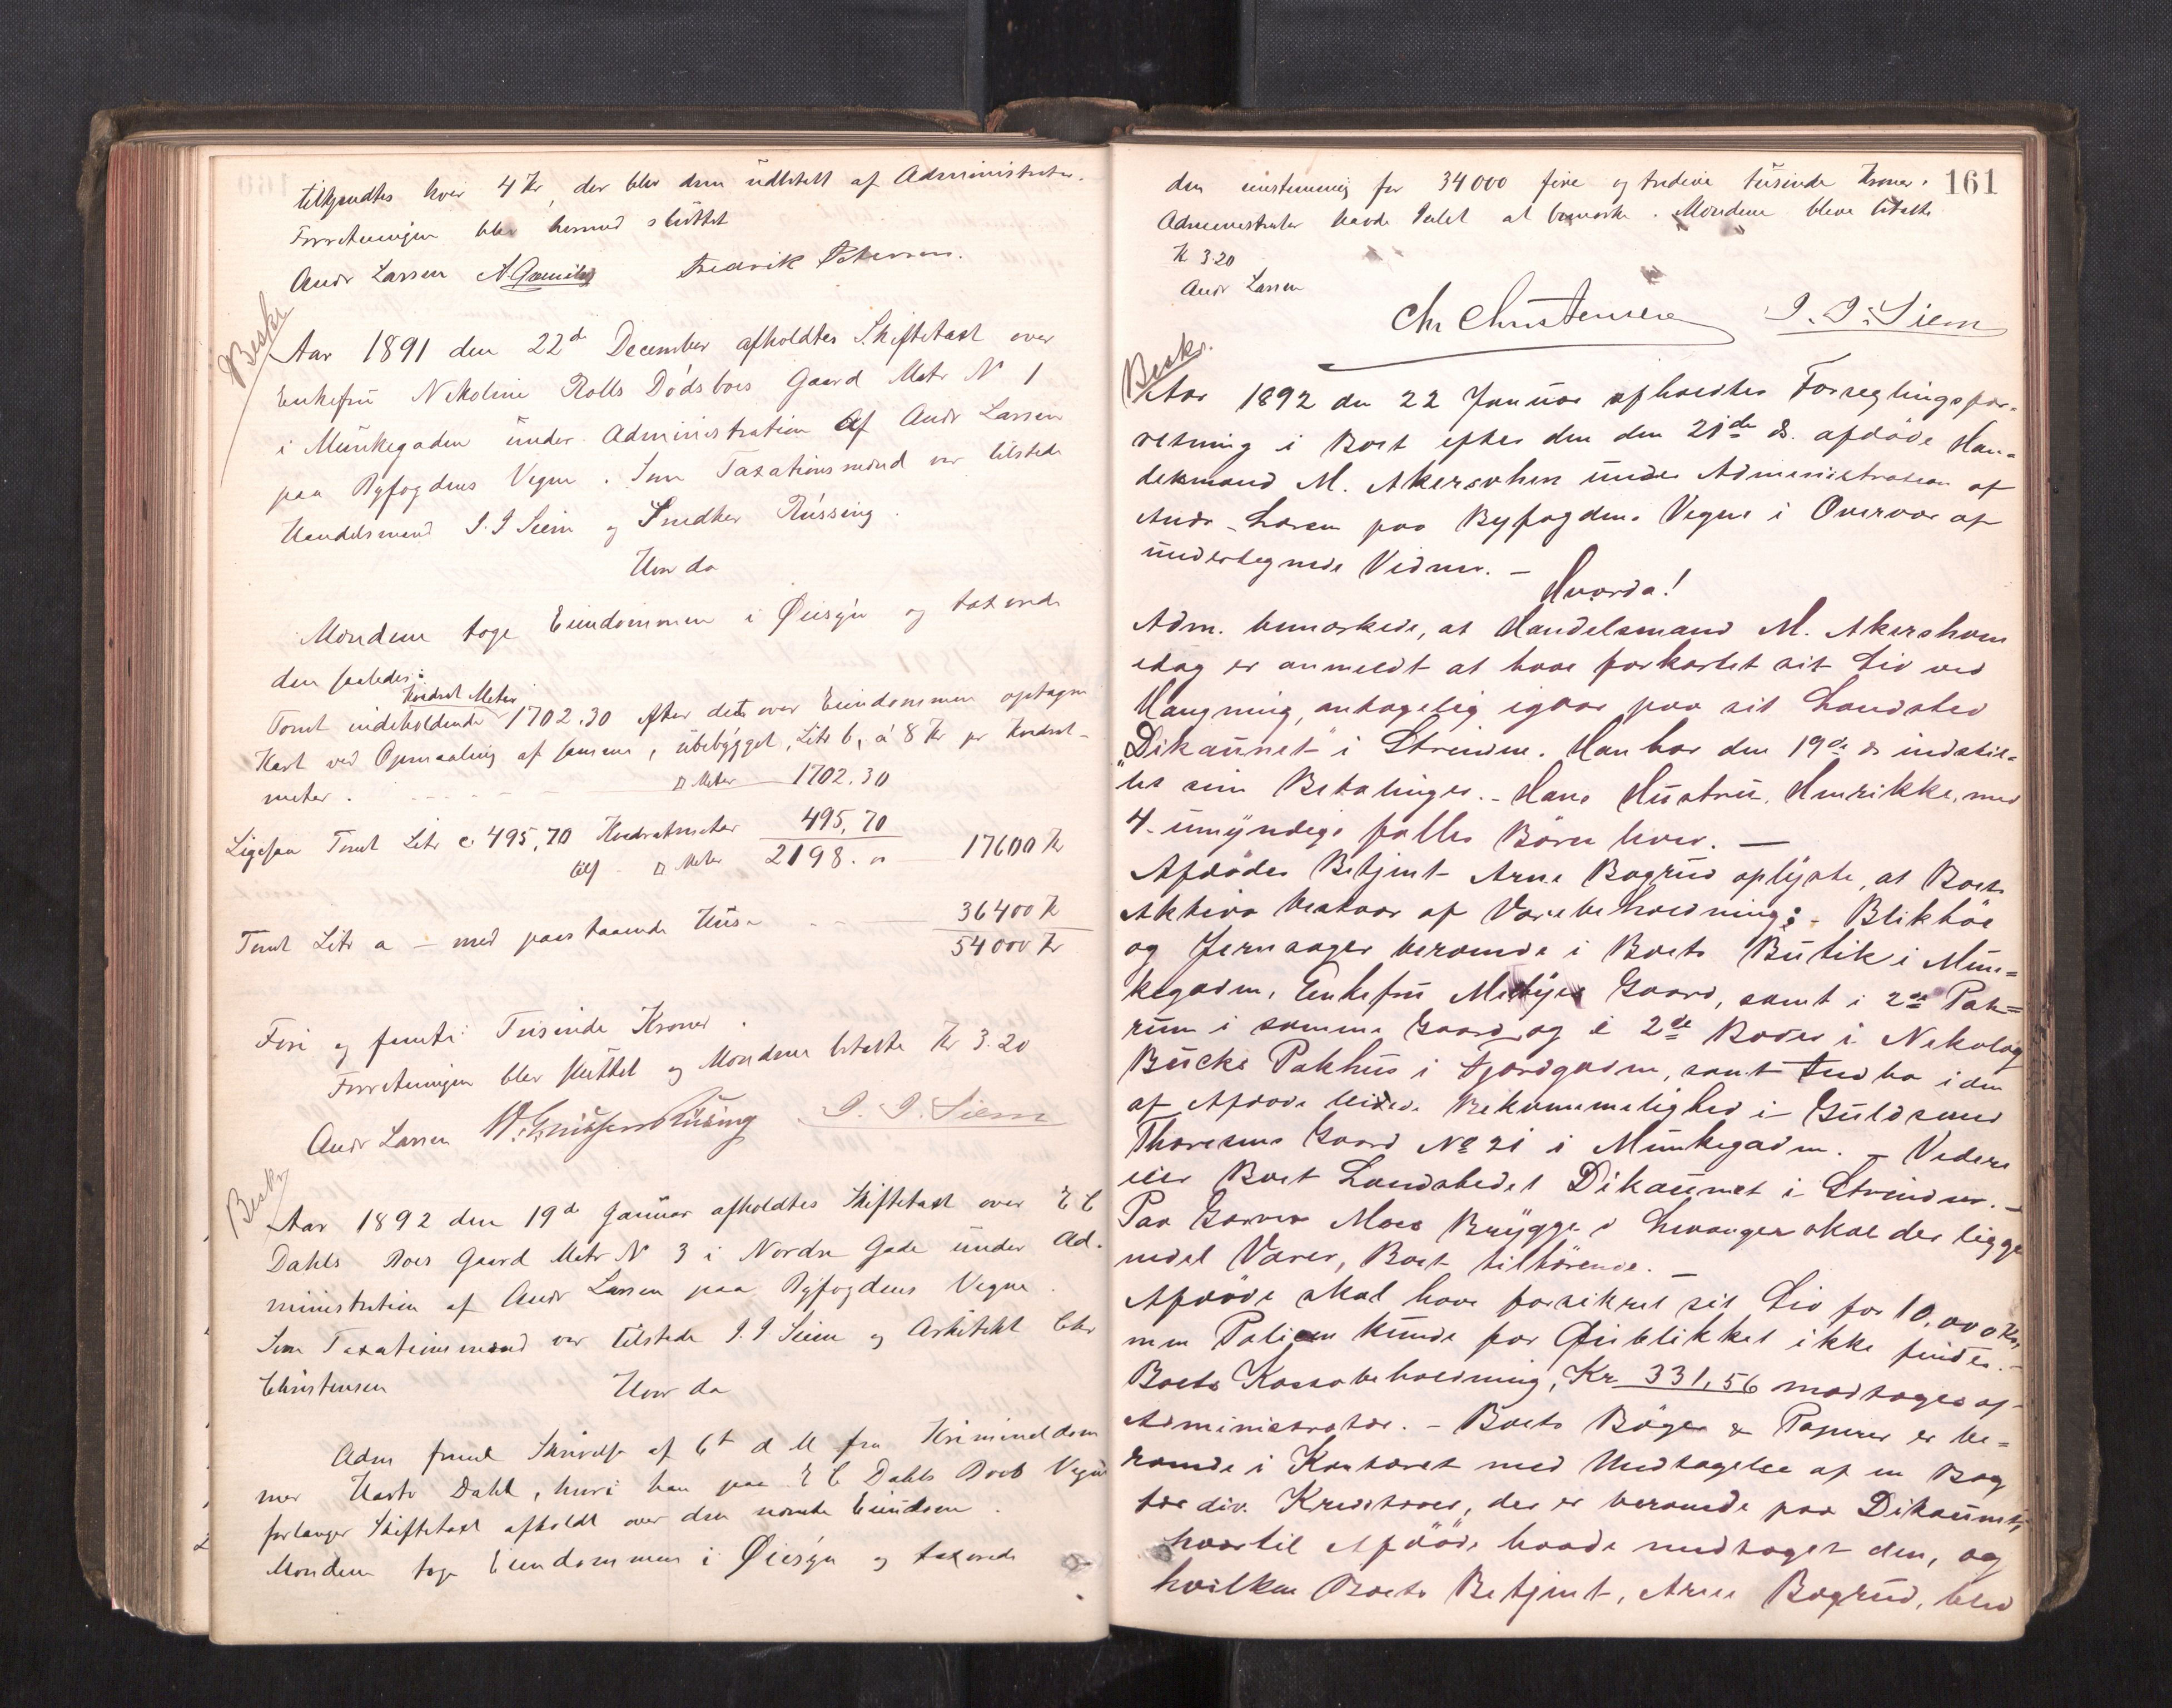 tilkjendtes hver 4 Kr, der blev dem udbetalt af Administrator.
Forretningen blev hermed sluttet
Andr Larsen Fredrik Petersen.
Beskr
Aar 1891 den 22d December afholdtes Skiftetaxt over
Enkefru Nikoline Rolls Dödsboes Gaard Matr N 1
i Munkegaden under Administration af Andr Larsen
paa Byfogdens Vegne. Som Taxationsmænd var tilstede
Handelsmand I. I Siem og Snedker Rüssing.
Hvor da
Mændene toge Eiendommen i Øiesyn og taxerede
den saaledes:
Kvadrat Meter
Tomt indeholdende 1702.30 efter det over Eiendommen optagne
Kart ved Opmaaling af samme, ubebygget, Litr b, á 8 Kr pr Kvadrat-
meter. □ Meter 1702.30
Ligesaa Tomt Litr c. 495,70 Kvadratmeter 495,70
□ Meter 2198. " 17600 Kr
Tomt Litr a – med paastaaende Huse 36400 Kr
54000 Kr
Fire og femti Tusinde Kroner.
Forretningen blev sluttet og Mændene betalte Kr 3.20
Andr Larsen I. I. Siem
Beskr
Aar 1892 den 19d Januar afholdtes Skiftetaxt over E C
Dahls Boes Gaard Matr N 3 i Nordre Gade under Ad-
ministration af Andr Larsen paa Byfogdens Vegne.
Som Taxationsmænd var tilstede I. I Siem og Arkitekt Chr
Christensen Hvor da
Adm freml Skrivelse af 6t d M fra Krimineldom
mer Dahl, hvori han paa E C Dahls Boes Vegne
forlanger Skiftetaxt afholdt over den nævnte Eiendom.
Mændene toge Eiendommen i Øiesyn og taxerede
161
den enstemmig for 34000 fire og tredive tusinde Kroner.
Administrator havde Intet at bemærke. Mændene bleve betalte
Kr 3.20
Andr Larsen
Chr Christensen I. I. Siem
Beskr.
Aar 1892 den 22 Januar afholdtes Forseglingsfor-
retning i Boet efter den den 21de ds. afdöde Han-
delsmand M. Akersohen under Administration af
Andr. Larsen paa Byfogdens Vegne i Overvær af
undertegnede Vidner. –
Hvorda!
Adm. bemærkede, at Handelsmand M. Akershom
idag er anmeldt at have forkortet sit Liv ved
Hængning, antagelig igaar paa sit Landsted
"Dikaunet" i Strinden. Han har den 19de ds indstil-
let sine Betalinger. – Hans Hustru, Henrikke, med
4 umyndige fælles Börn lever. –
Afdödes Betjent Arne Bogrud oplyste, at Boets
Aktiva bestaar af Varebeholdning: – Bliktöi
og Jernsager beroende i Boets Butik i Mun-
kegaden, Enkefru Gaard, samt i 2de Pak-
rum i samme Gaard og i 2de Boder i Nekolay
Bucks Pakhus i Fjordgaden, samt Indbo i den
af Afdöde leiede Bekvemmelighed i Guldsmed
Thoresens Gaard No 21 i Munkegaden. – Videre
eier Boet Landstedet Dikaunet i Strinden. –
Paa Garver Moes Brygge i Levanger skal der ligge
endel Varer, Boet tilhörende. –
Afdöde skal have forsikret sit Liv for 10,000 Kr,
men Policen kunde for Øieblikket ikke findes. –
Boets Kassabeholdning, Kr 331,56 modtoges af
Administrator. – Boets Böger & Papirer er be-
roende i Kontoret med Undtagelse af en Bog
for div. Kreditorer, der er beroende paa Dikaunet,
hvortil Afdöde havde medtaget den, og
hvilken Boets Betjent, Arne Bogrud, blev